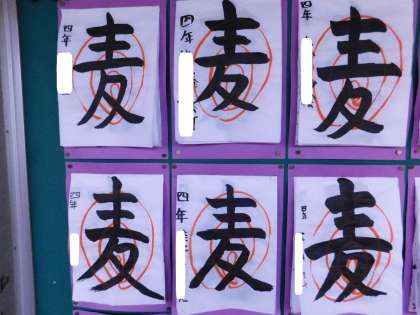 麦
四年
麦
四年
麦
四年
麦
四年
麦
四年
麦